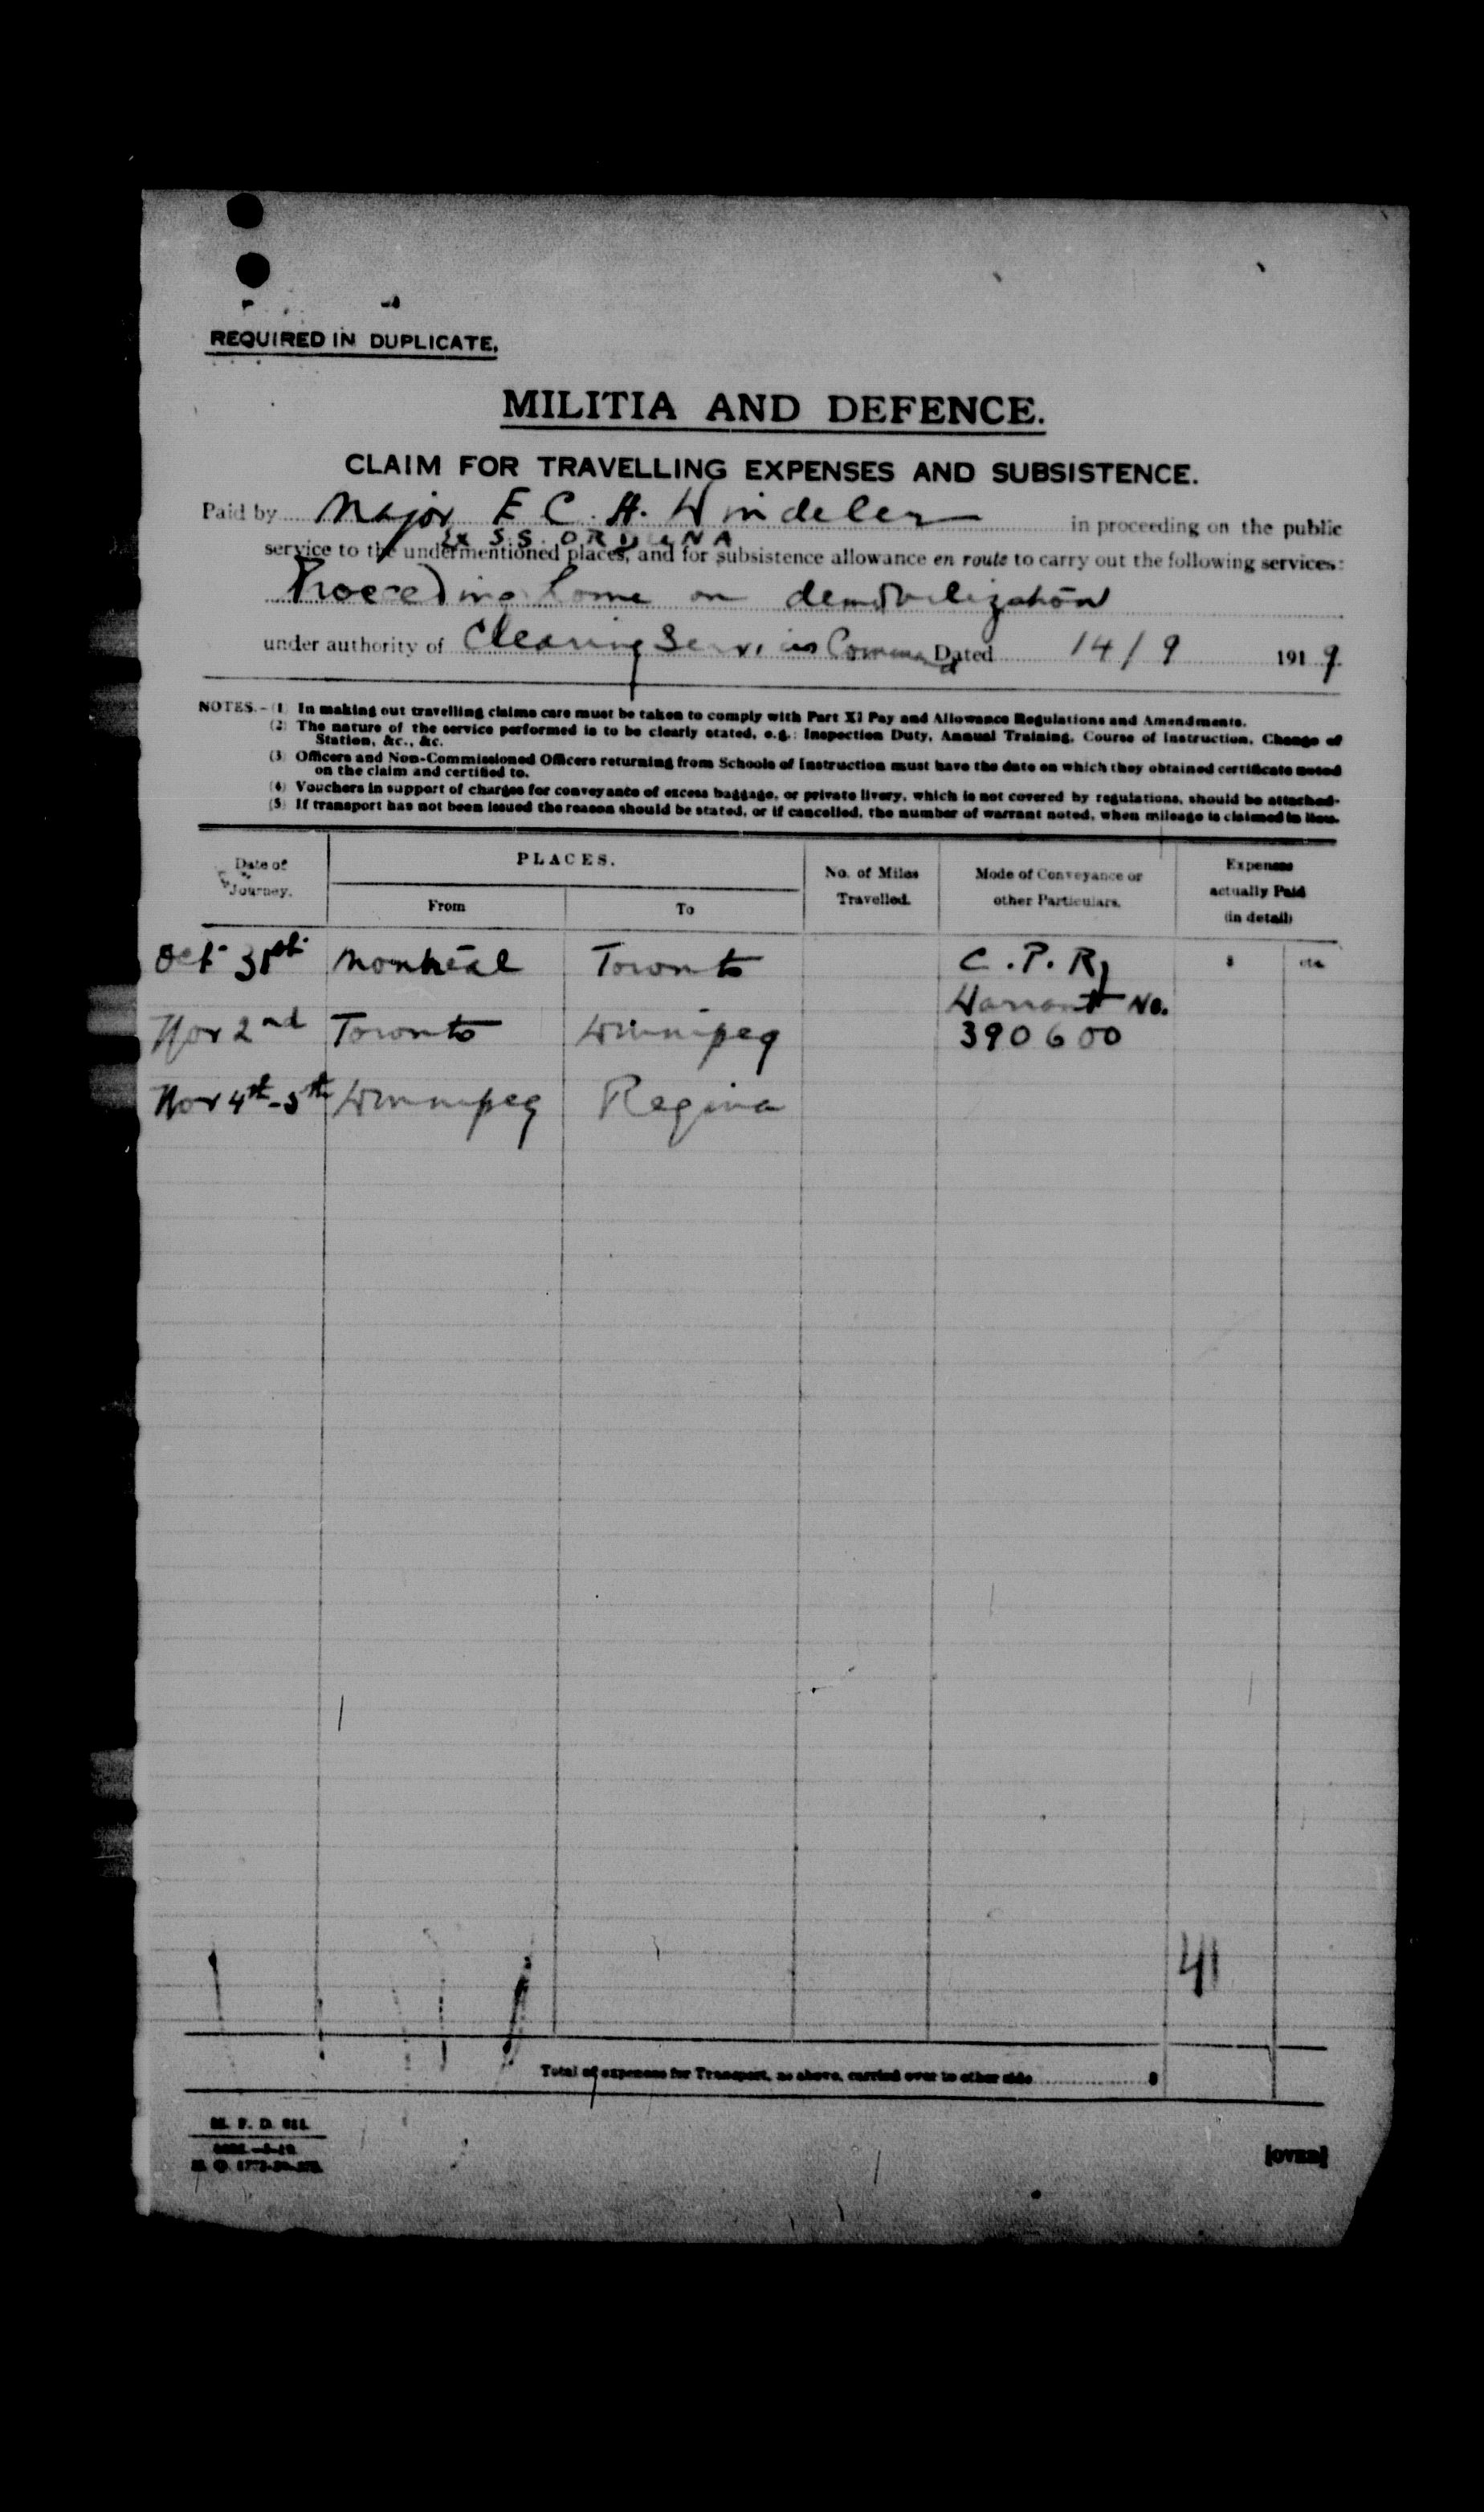 REQUIRED IN DUPLICATE.
MILITIA AND DEFENCE.
CLAIM FOR TRAVELLING EXPENSES AND SUBSISTENCE.
Paid by Major E C. H. Windeler in proceeding on the public
Ex S.S. ORDUNA
service to the undermentioned places, and for subsistence allowance en route to carry out the following services:
Proceeding home on demobilization
under authority of Clearing Services Command Dated 14/9 1919
NOTES.-(1) In making out travelling claims care must be taken to comply with Part XI Pay and Allowance Regulations and Amendments.
(2) The nature of the service performed is to be clearly stated, e.g.: Inspection Duty, Annual Training, Course of Instruction, Change of
Station, &c., &c.
(3) Officers and Non-Commissioned Officers returning from Schools of Instruction must have the date on which they obtained certificate noted
on the claim and certified to.
(4) Vouchers in support of charges for conveyance of excess baggage, or private livery, which is not covered by regulations, should be attached.
(5) If transport has not been issued the reason should be stated, or if cancelled, the number of warrant noted, when mileage is claimed in lieu.
Date of Journey. PLACES. No. of Miles Travelled. Mode of Conveyance or other Particulars. Expenses actually Paid (in detail)
From To
Oct 31st Montreal Toronto C.P.R, $ cts.
Warrant No.
Nov 2nd Toronto Winnipeg 390600
Nov 4th-5th Winnipeg Regina
41
Total of expenses for Transport, as above, carried over to other side $
M. F. D. 911.
[OVER]